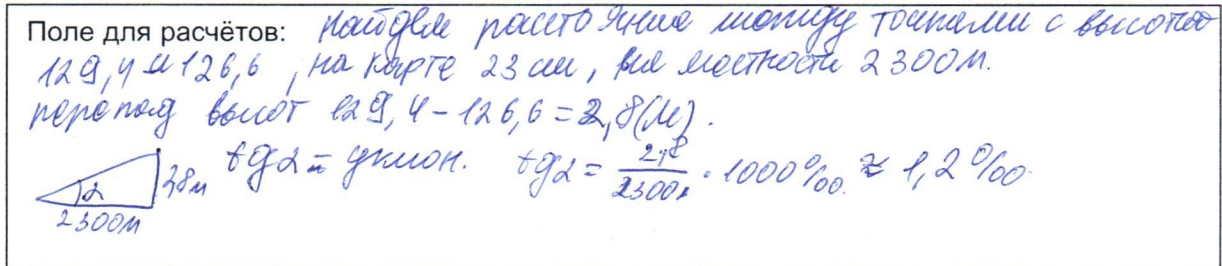 Поле для расчётов: найдём расстояние между точками с высотой
129,4 и 126,6, на карте 23 см, на местности 2300м.
перепад высот 129,4 - 126,6 = 2,8(м).
α 2,8м tgα = уклон. tgα = 2,8/2300м · 1000‰ ≈ 1,2‰
2300м